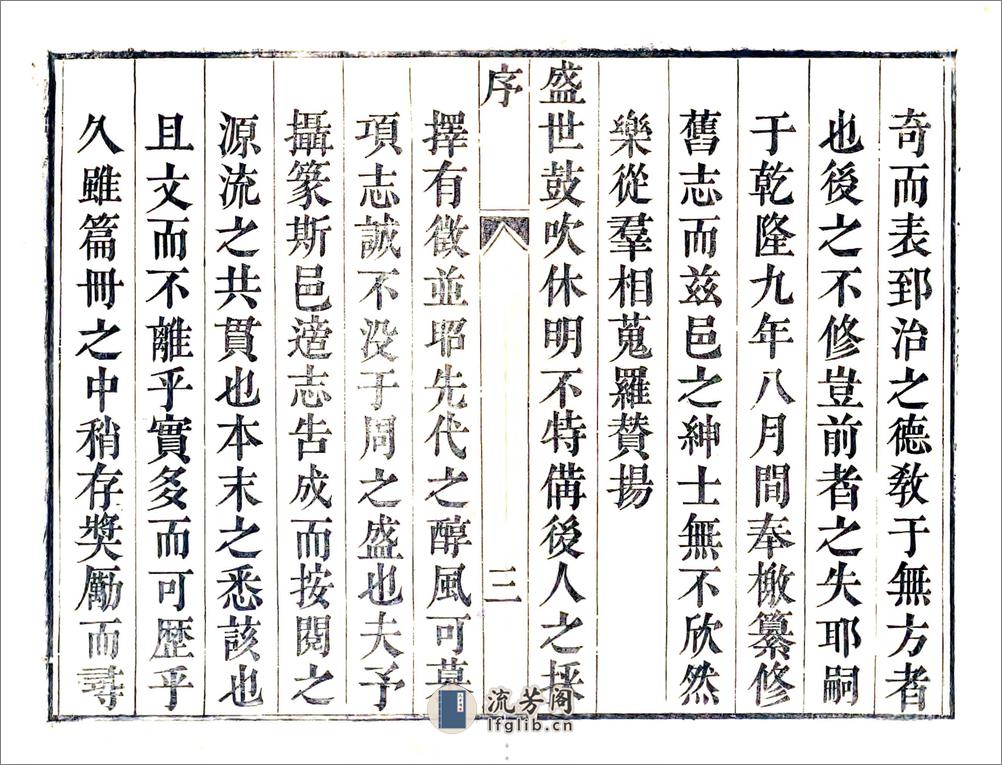 奇而表郅治之德敎于無方者
也後之不修豈前者之失耶嗣
于乾隆九年八月間奉檄纂修
舊志而兹邑之紳士無不欣然
樂從羣相蒐羅賛揚
盛世鼓吹休明不特備後人之採
序
三
擇有徵並耶先代之醇風可慕
項志誠不没于周之盛也夫予
攝篆斯邑適志告成而按閱之
源流之共貫也本末之悉該也
且文而不離乎實多而可歷乎
久雖篇冊之中稍存奬勵而尋
流芳阁
lfglib.cn